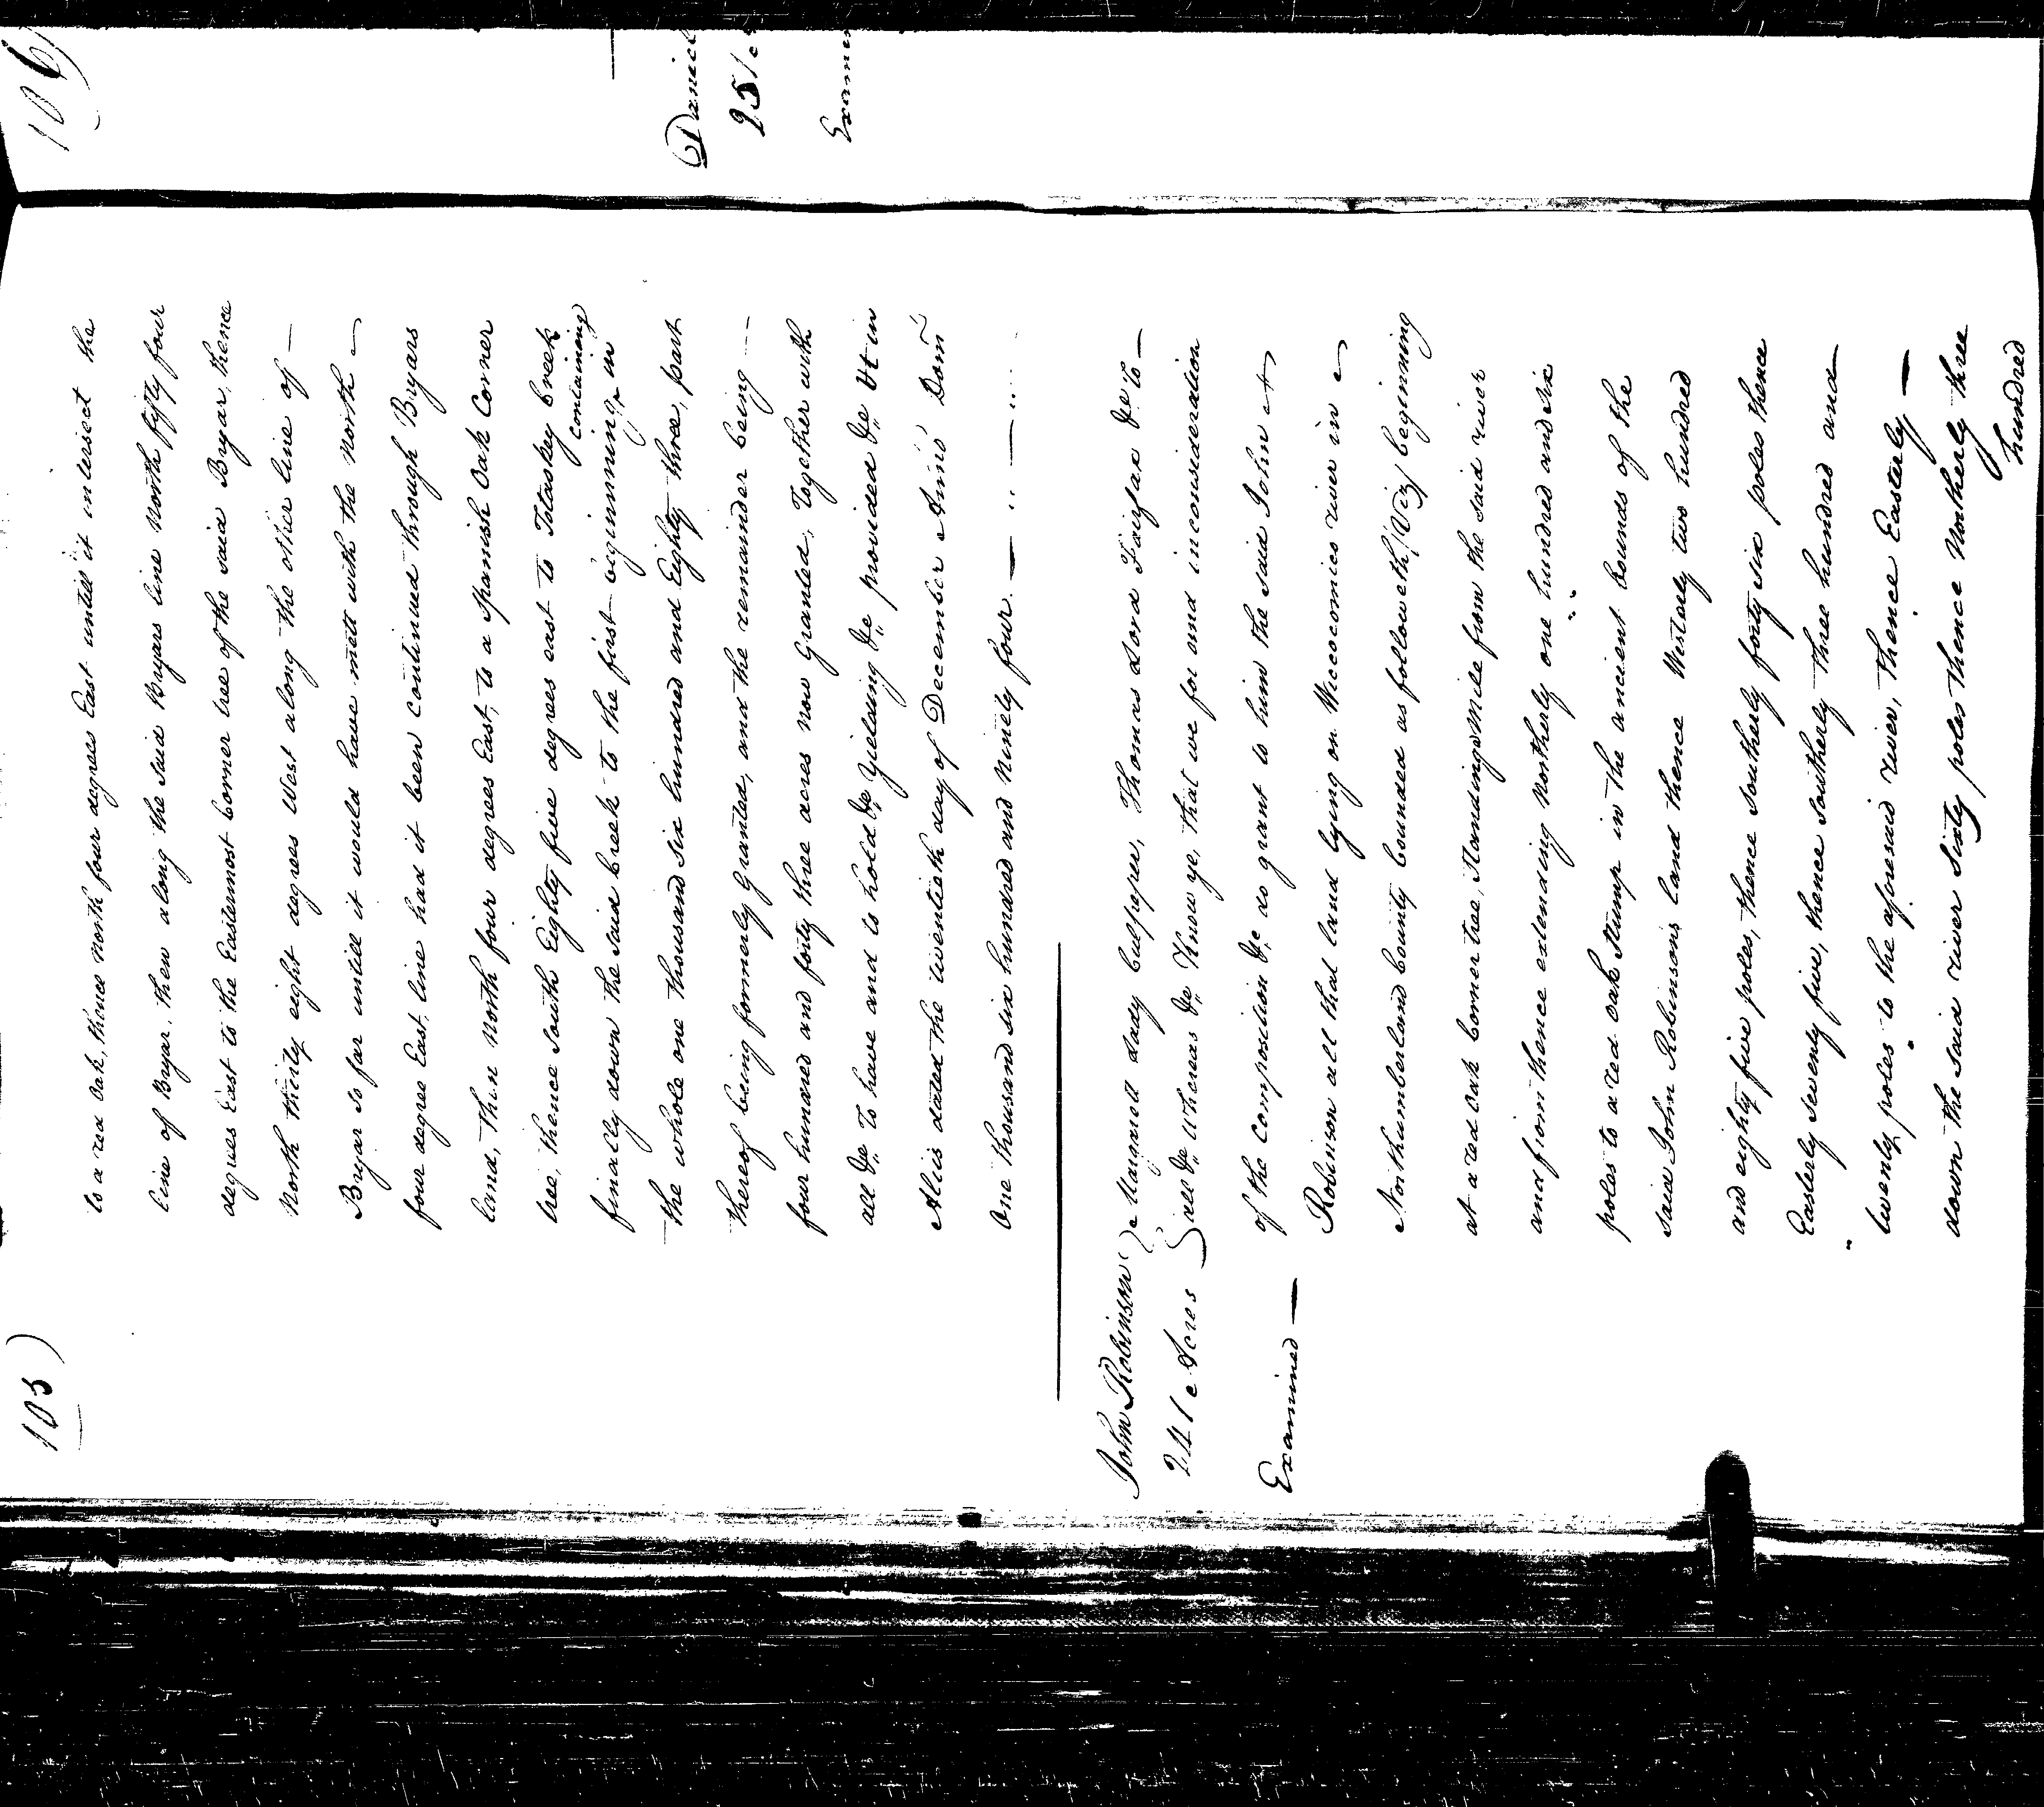 105)
to a red oak, thence North four degrees East untill it intersect the
line of Bryar, then along the said Bryars line North fifty four
degrees East to the Eastermost Corner tree of the said Bryar, thence
North thirty eight degrees West along the other line of —
Bryar so far untill it would have mett with the North
four degree East, line had it been continued through Bryars
land, then North four degrees East, to a Spanish Oak Corner
tree, thence South Eighty five degrees east to Totaskey Creek
finally down the said Creek to the first beginning containing in
the whole one thousand six hundred and Eighty three, part
thereof being formerly Granted, and the remainder being —
four hundred and forty three acres now Granted, Together with
all &c To have and to hold &c Yielding &c provided &c Ut in
Aliis dated the twentieth day of December Anno Dom
One thousand six hundred and Ninety four. —
John Robinson Margrett Lady Culpeper, Thomas Lord Fairfax &c To —
241 Acres all &c whereas &c Know ye, that we for and inconsideration
of the Composition &c do grant to him the said John
Examined —
Robinson all that land lying on Wiccocomico river in
Northumberland County bounded as followeth (Viz) beginning
at a red oak Corner tree, Standing a Mile from the said river
and from thence extending Northerly one hundred and six
poles to a red oak Stump in the ancient bounds of the
said John Robinsons land thence Westerly two hundred
and eighty five poles, thence Southerly forty six poles thence
Easterly Seventy five, thence Southerly three hundred and
twenty poles to the aforesaid river, thence Easterly —
down the said river Sixty poles thence Northerly three
hundred
106)
Daniel
251